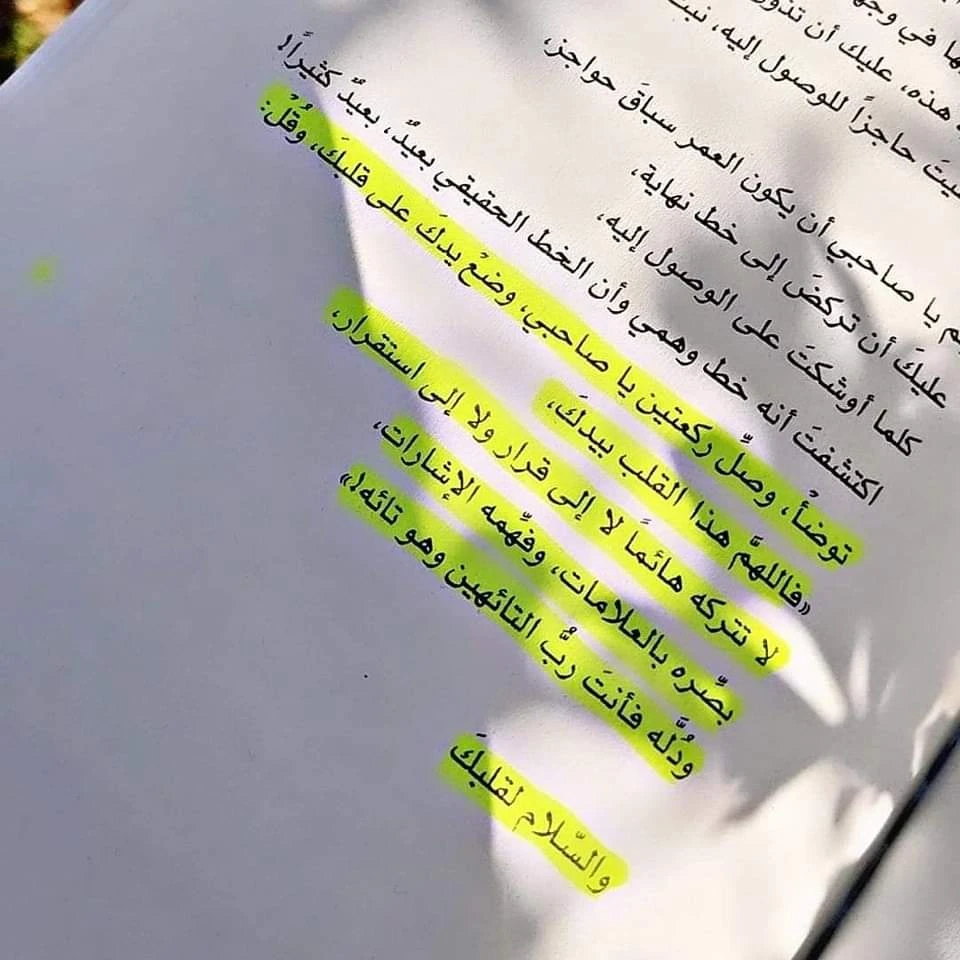 ها في وجهـ
هذه، عليك أن تذور
ـيتَ حاجزاً للوصول إليه، نبتـ
يا صاحبي أن يكون العمر سباقَ حواجز،
عليكَ أن تركضَ إلى خط نهاية،
كلما أوشكتَ على الوصول إليه،
اكتشفتَ أنه خط وهمي وأن الخط الحقيقي بعيدٌ، بعيدٌ كثيراً!
توضأْ، وصلِّ ركعتين يا صاحبي، وضعْ يدكَ على قلبكَ، وقُلْ:
«فاللهمَّ هذا القلب بيدكَ،
لا تتركه هائماً لا إلى قرار ولا إلى استقرار،
بصِّره بالعلامات، وفهِّمه الإشارات،
ودُلَّه فأنتَ ربُّ التائهين وهو تائه!»
والسّلام لقلبكَ